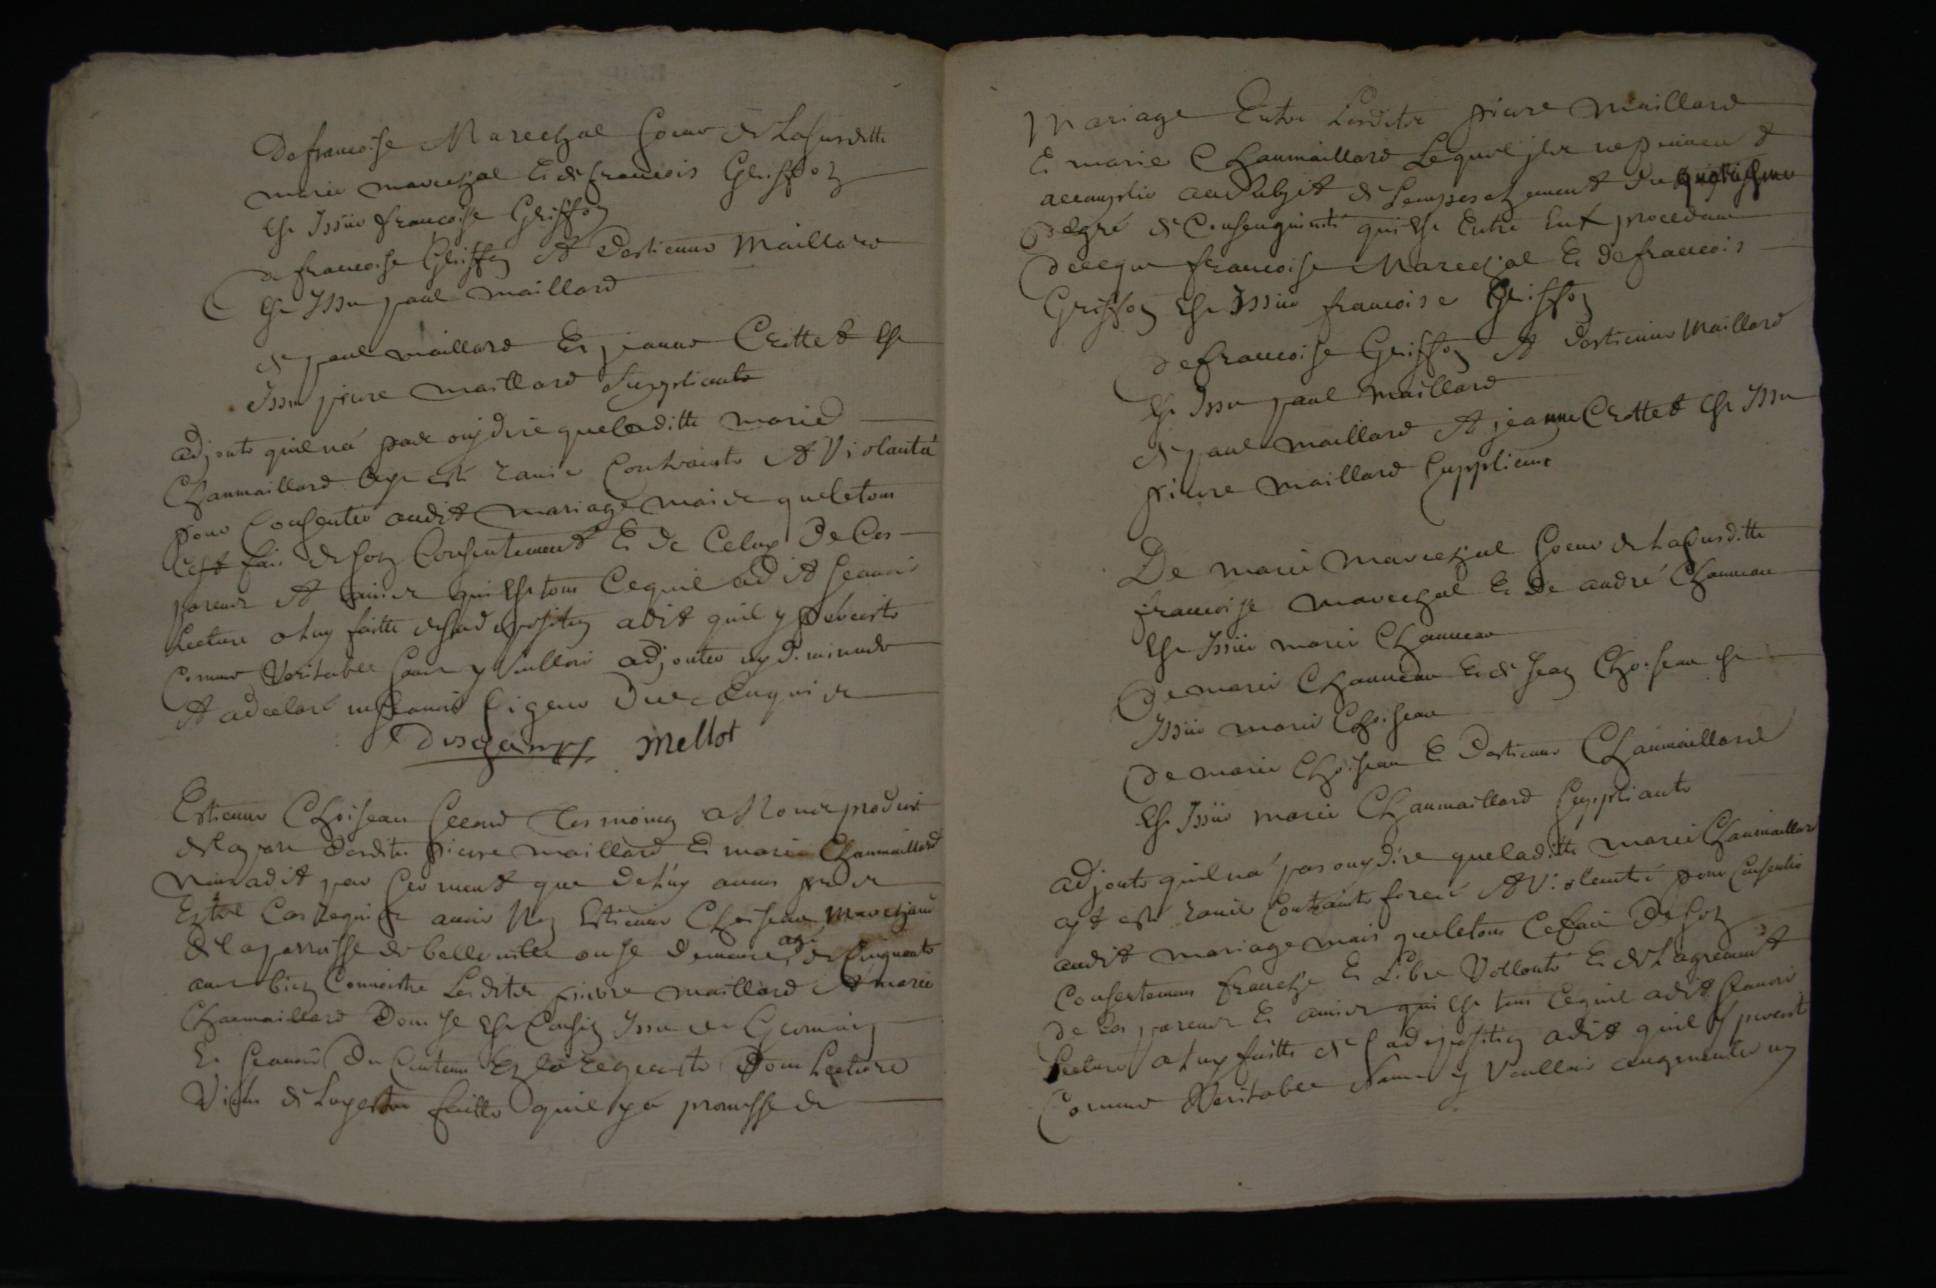 De francoise Marechal soeur de la susditte
marie marechal Et de francois Griffon
Est Issüe francoise Griffon
De francoise Griffon Et d'estienne Maillard
Est Issu paul maillard
de paul maillard Et jeanne Crottet Est
Issu pierre maillard suppliant
adjoute quil na pas ouy dire que laditte marie
Chaumaillard aye esté ravie Contrainte Et Violantée
pour Consentir audit mariage mais que le tout
cest fait de son Consentement Et De Celuy De Ces
parents Et amis qui Est tout Ce quil a dit scavoir
Lecture a luy faitte de sa deposition a dit quil y persiste
Comme Veritable sans y Vouloir adjouter ny diminuer
Et a declaré ne scavoir signer Duement Enquis
Deschamps Mellot
Estienne Choiseau second tesmoing a Nous produit
de la part desdits pierre maillard Et marie Chaumaillard
Nous a dit par serment que de luy avons pris
Et tel Cas requis avoir Nom Estienne Choiseau marchand
de la parroisse de belleville ou il demeure agé de Cinquante
ans bien Connoistre Lesdits pierre maillard Et marie
Chaumaillard Dont il Est Cousin Issu de Germain
Et scavoir Du Contenu En la requeste Dont Lecture
Vient de luy estre faitte quil y a promesse de
Mariage Entre Lesdits pierre maillard
Et marie Chaumaillard Lequel ils ne peuvent
accomplir au subjet de L'empeschement du
Degré de Consanguinité qui Est Entre Eux procedant
De ce que francoise Marechal Et de francois
Griffon Est Issüe francoise Griffon
De francoise Griffon Et d'estienne Maillard
Est Issu paul Maillard
de paul maillard Et jeanne Crottet Est Issu
pierre maillard suppliant
De marie marechal soeur de la susditte
francoise marechal Et De andré Chauveau
Est Issüe marie Chauveau
De marie Chauveau Et de Jean Choiseau Est
Issüe marie Choiseau
De marie Choiseau Et d'estienne Chaumaillard
Est Issüe marie Chaumaillard suppliante
adjoute quil na pas ouy dire que laditte marie Chaumaillard
ayt esté ravie Contrainte forcée Et Violentée pour Consentir
audit mariage mais que le tout Ce fait De son
Consentement franche Et Libre Vollonté Et de L'agrement
De Ces parents Et amis qui Est tout Ce quil a dit scavoir
Lecture a luy faitte de sa deposition a dit quil y persiste
Comme Veritable sans y Voulloir augmenter ny